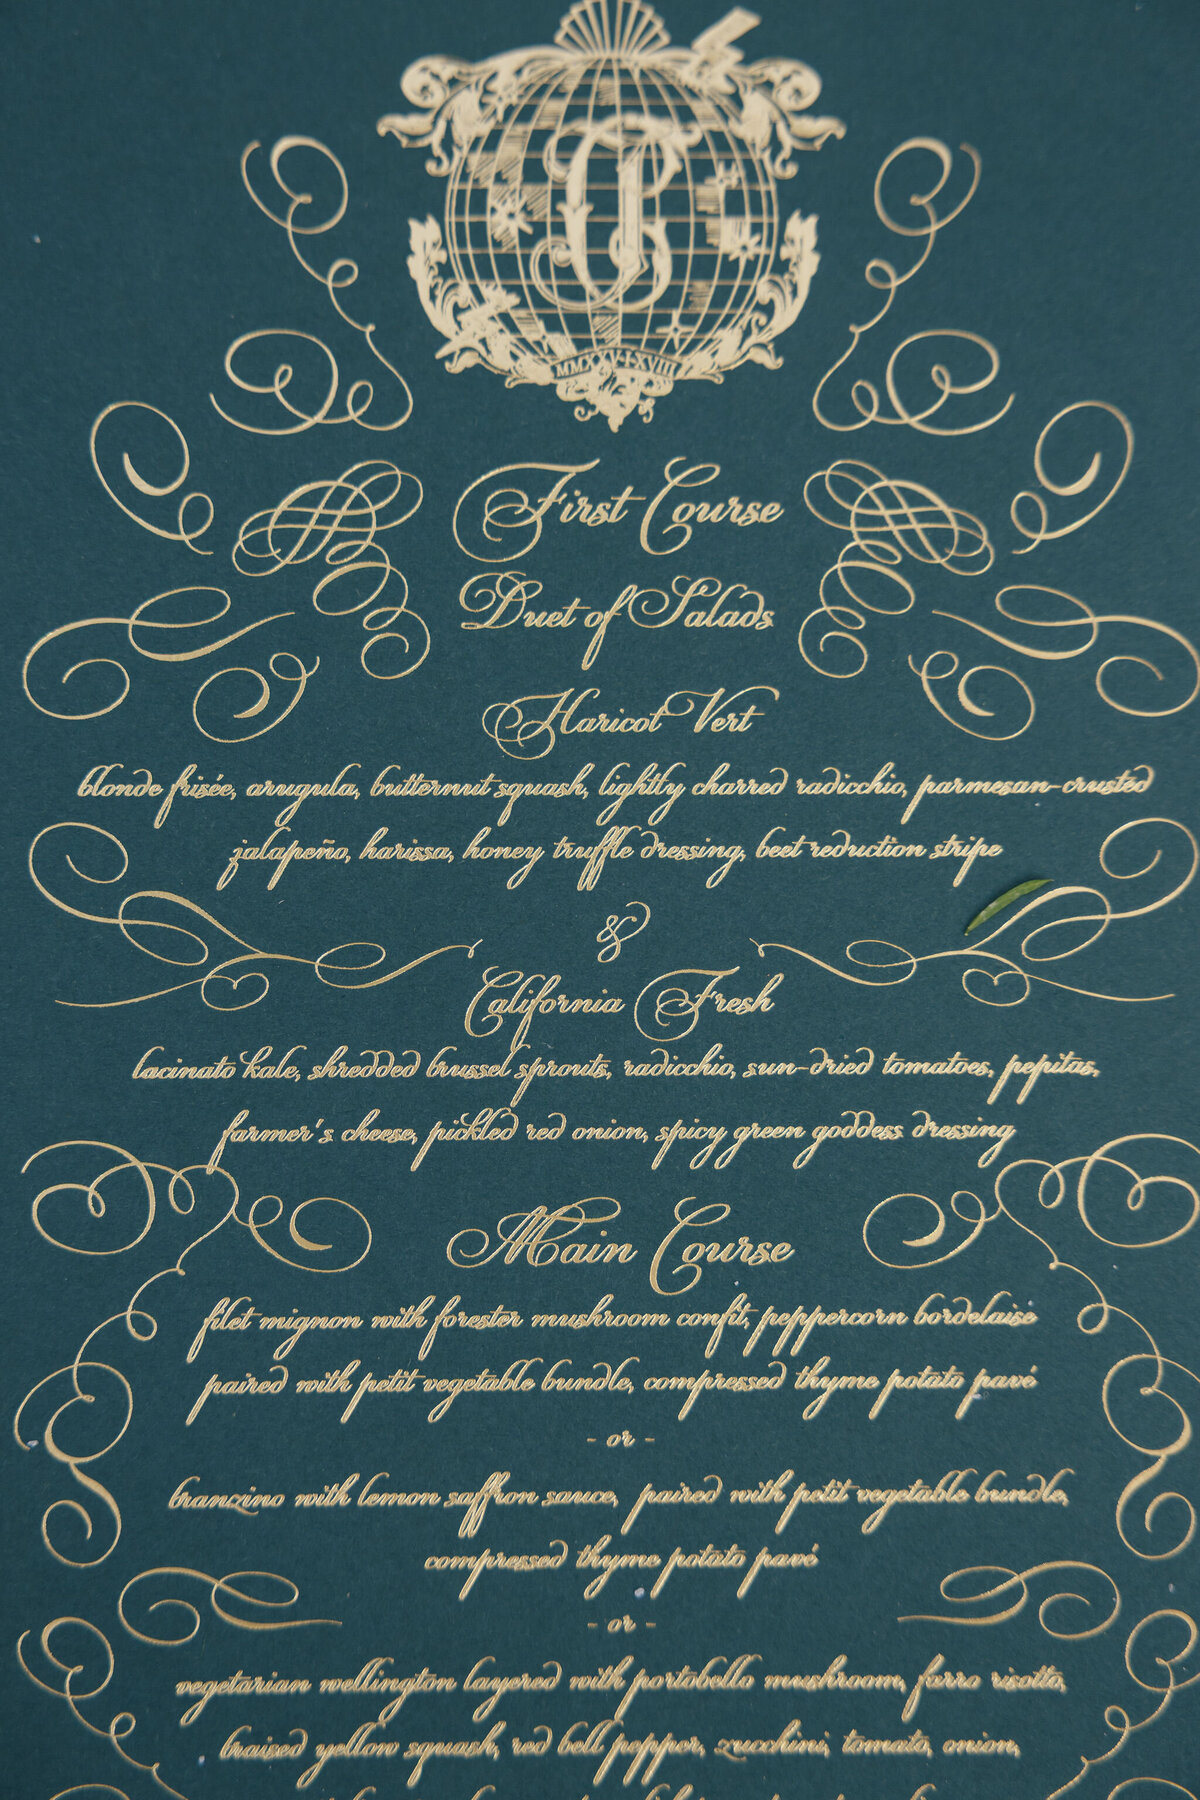 MMXXV·I·XVIII
First Course
Duet of Salads
Haricot Vert
blonde frisée, arugula, butternut squash, lightly charred radicchio, parmesan-crusted
jalapeño, harissa, honey truffle dressing, beet reduction stripe
&
California Fresh
lacinato kale, shredded brussel sprouts, radicchio, sun-dried tomatoes, pepitas,
farmer's cheese, pickled red onion, spicy green goddess dressing
Main Course
filet mignon with forester mushroom confit, peppercorn bordelaise
paired with petit vegetable bundle, compressed thyme potato pavé
- or -
branzino with lemon saffron sauce, paired with petit vegetable bundle,
compressed thyme potato pavé
- or -
vegetarian wellington layered with portobello mushroom, farro risotto,
braised yellow squash, red bell pepper, zucchini, tomato, onion,